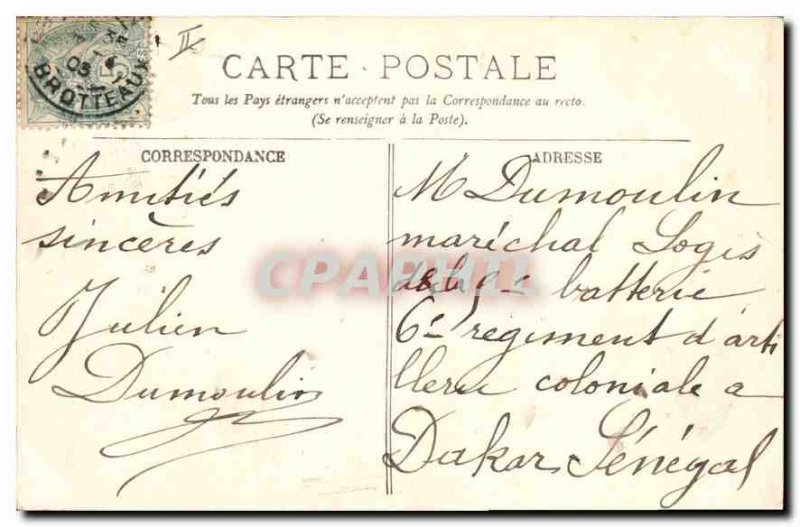 II
BROTTEAUX
05
5
CARTE POSTALE
Tous les Pays étrangers n'acceptent pas la Correspondance au recto.
(Se renseigner à la Poste).
CORRESPONDANCE
Amitiés
sincères
Julien
Dumoulin
ADRESSE
M Dumoulin
maréchal Logis
de la batterie
6e régiment d'arti
llerie coloniale a
Dakar Sénégal
CPAPHIL